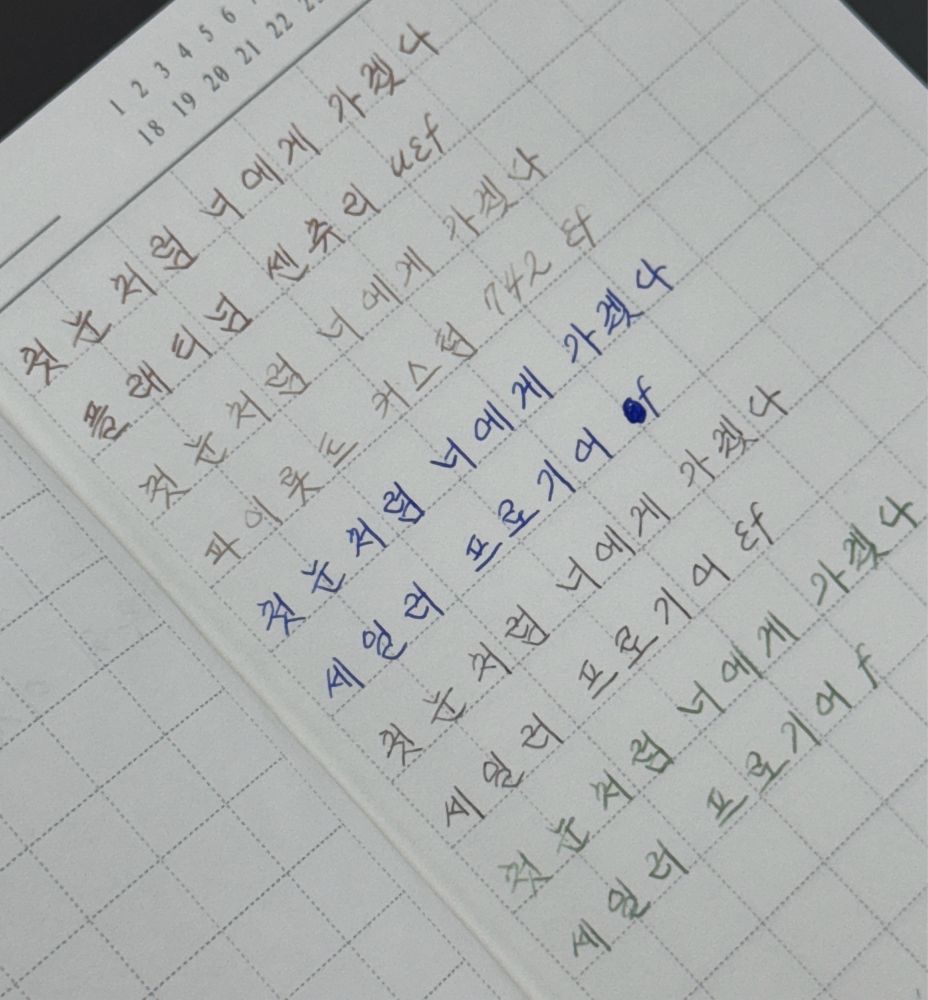 1 2 3 4 5 6
18 19 20 21 22
첫눈처럼 너에게 가겠다
플래티넘 센츄리 UEF
첫눈처럼 너에게 가겠다
파이롯트 커스텀 742 EF
첫눈처럼 너에게 가겠다
세일러 프로기어 f
첫눈처럼 너에게 가겠다
세일러 프로기어 Ef
첫눈처럼 너에게 가겠다
세일러 프로기어 f